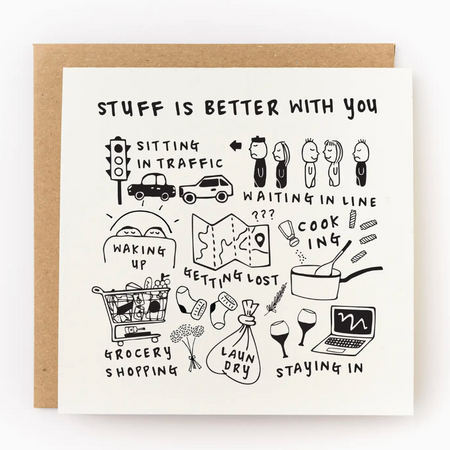 STUFF IS BETTER WITH YOU
SITTING
IN TRAFFIC
WAITING IN LINE
WAKING
UP
???
GETTING LOST
COOK
ING
GROCERY
SHOPPING
LAUN
DRY
STAYING IN